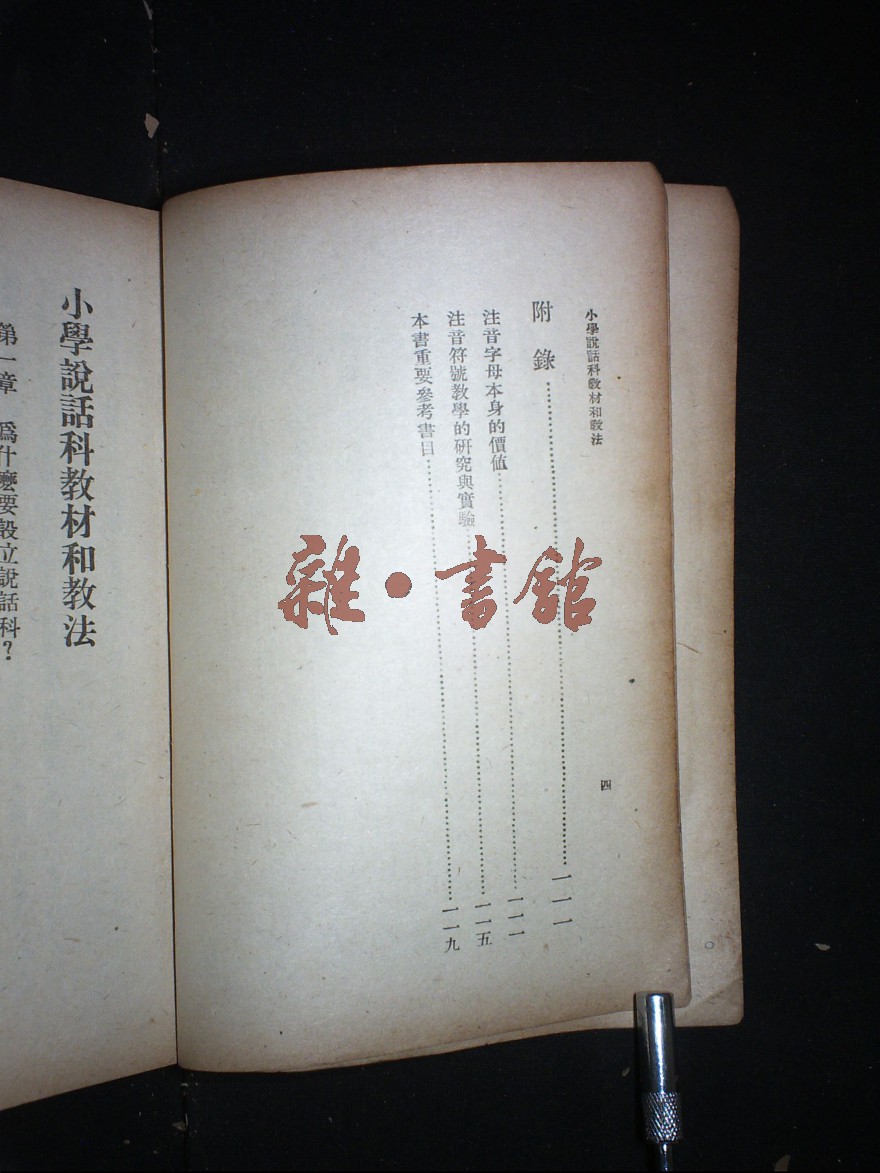 小學說話科教材和教法
四
附錄……一一一
注音字母本身的價値……一一一
注音符號教學的研究與實驗……一一五
本書重要參考書目……一一九
小學說話科教材和教法
第一章 爲什麼要設立說話科?
雜·書館